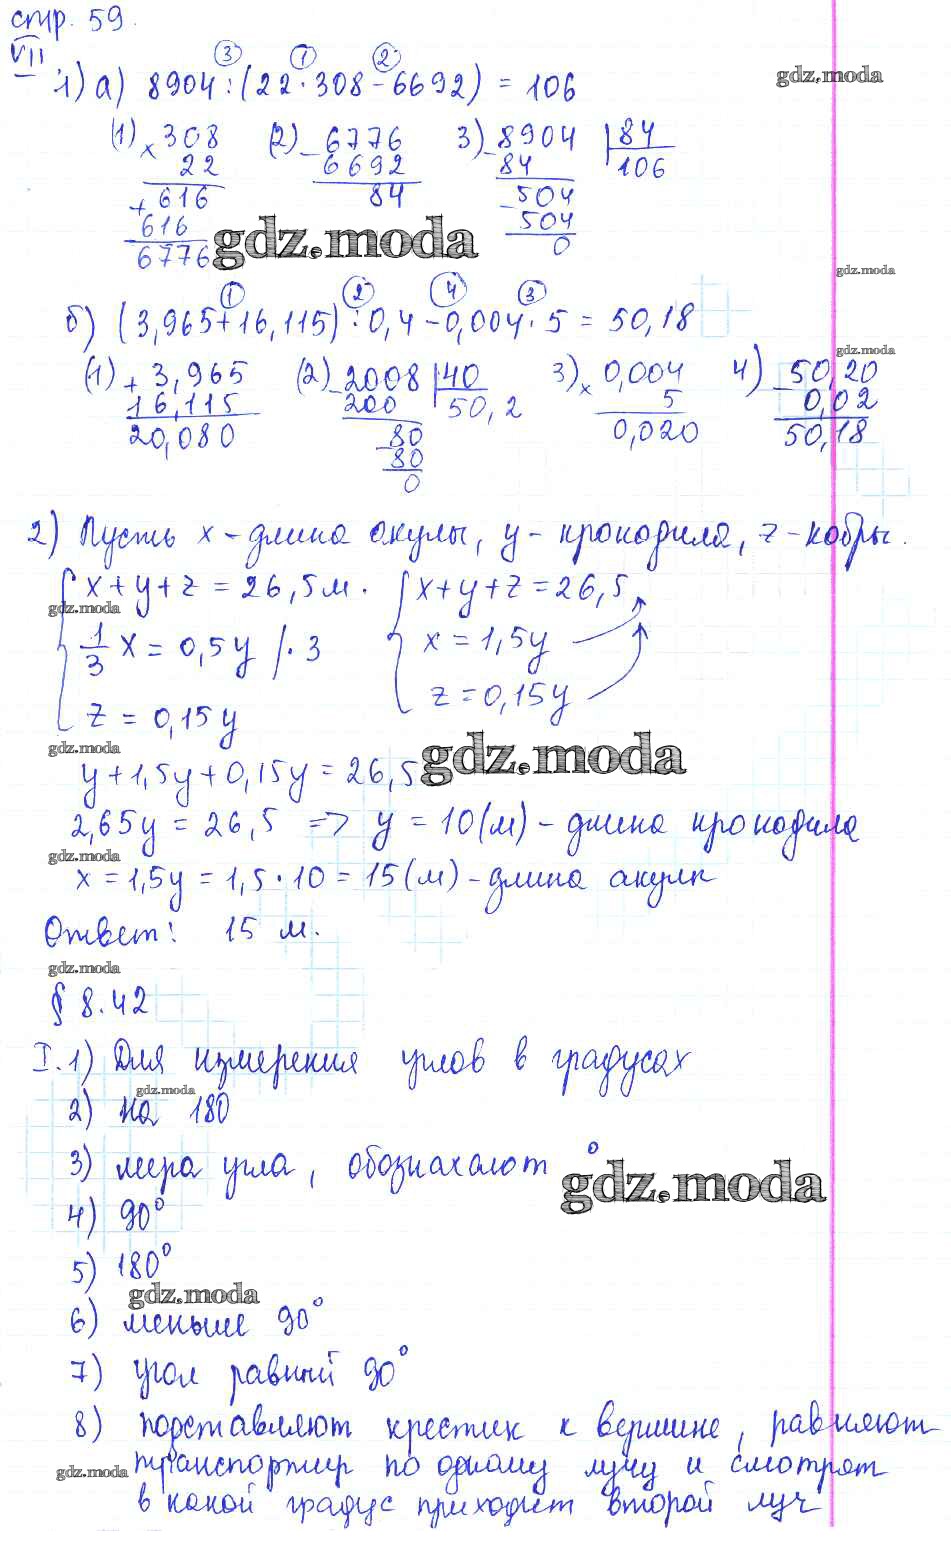 стр. 59.
VII
1) а) 8904 : (22 · 308 - 6692) = 106
③ ① ②
gdz.moda
(1) × 308 (2) - 6776 3) - 8904 | 84
22 6692 84 106
+ 616 84 - 504
616 504
6776 0
gdz.moda
gdz.moda
① ② ④ ③
б) (3,965 + 16,115) : 0,4 - 0,004 · 5 = 50,18
gdz.moda
(1) + 3,965 (2) - 2008 | 40 3) × 0,004 4) - 50,20
16,115 200 50,2 5 0,02
20,080 - 80 0,020 50,18
80
0
2) Пусть x - длина акулы, y - крокодила, z - кобры.
{ x + y + z = 26,5 м. { x + y + z = 26,5
gdz.moda
1/3 x = 0,5y | · 3 x = 1,5y
z = 0,15y z = 0,15y
gdz.moda
gdz.moda
y + 1,5y + 0,15y = 26,5
2,65y = 26,5 => y = 10 (м) - длина крокодила
gdz.moda
x = 1,5y = 1,5 · 10 = 15 (м) - длина акулы
Ответ: 15 м.
gdz.moda
§ 8.42
I. 1) Для измерения углов в градусах
gdz.moda
2) на 180
3) мера угла, обозначают °
gdz.moda
4) 90°
5) 180°
gdz.moda
6) меньше 90°
7) угол равный 90°
8) подставляют крестик к вершине, равняют
gdz.moda
транспортир по одному лучу и смотрят
в какой градус приходит второй луч